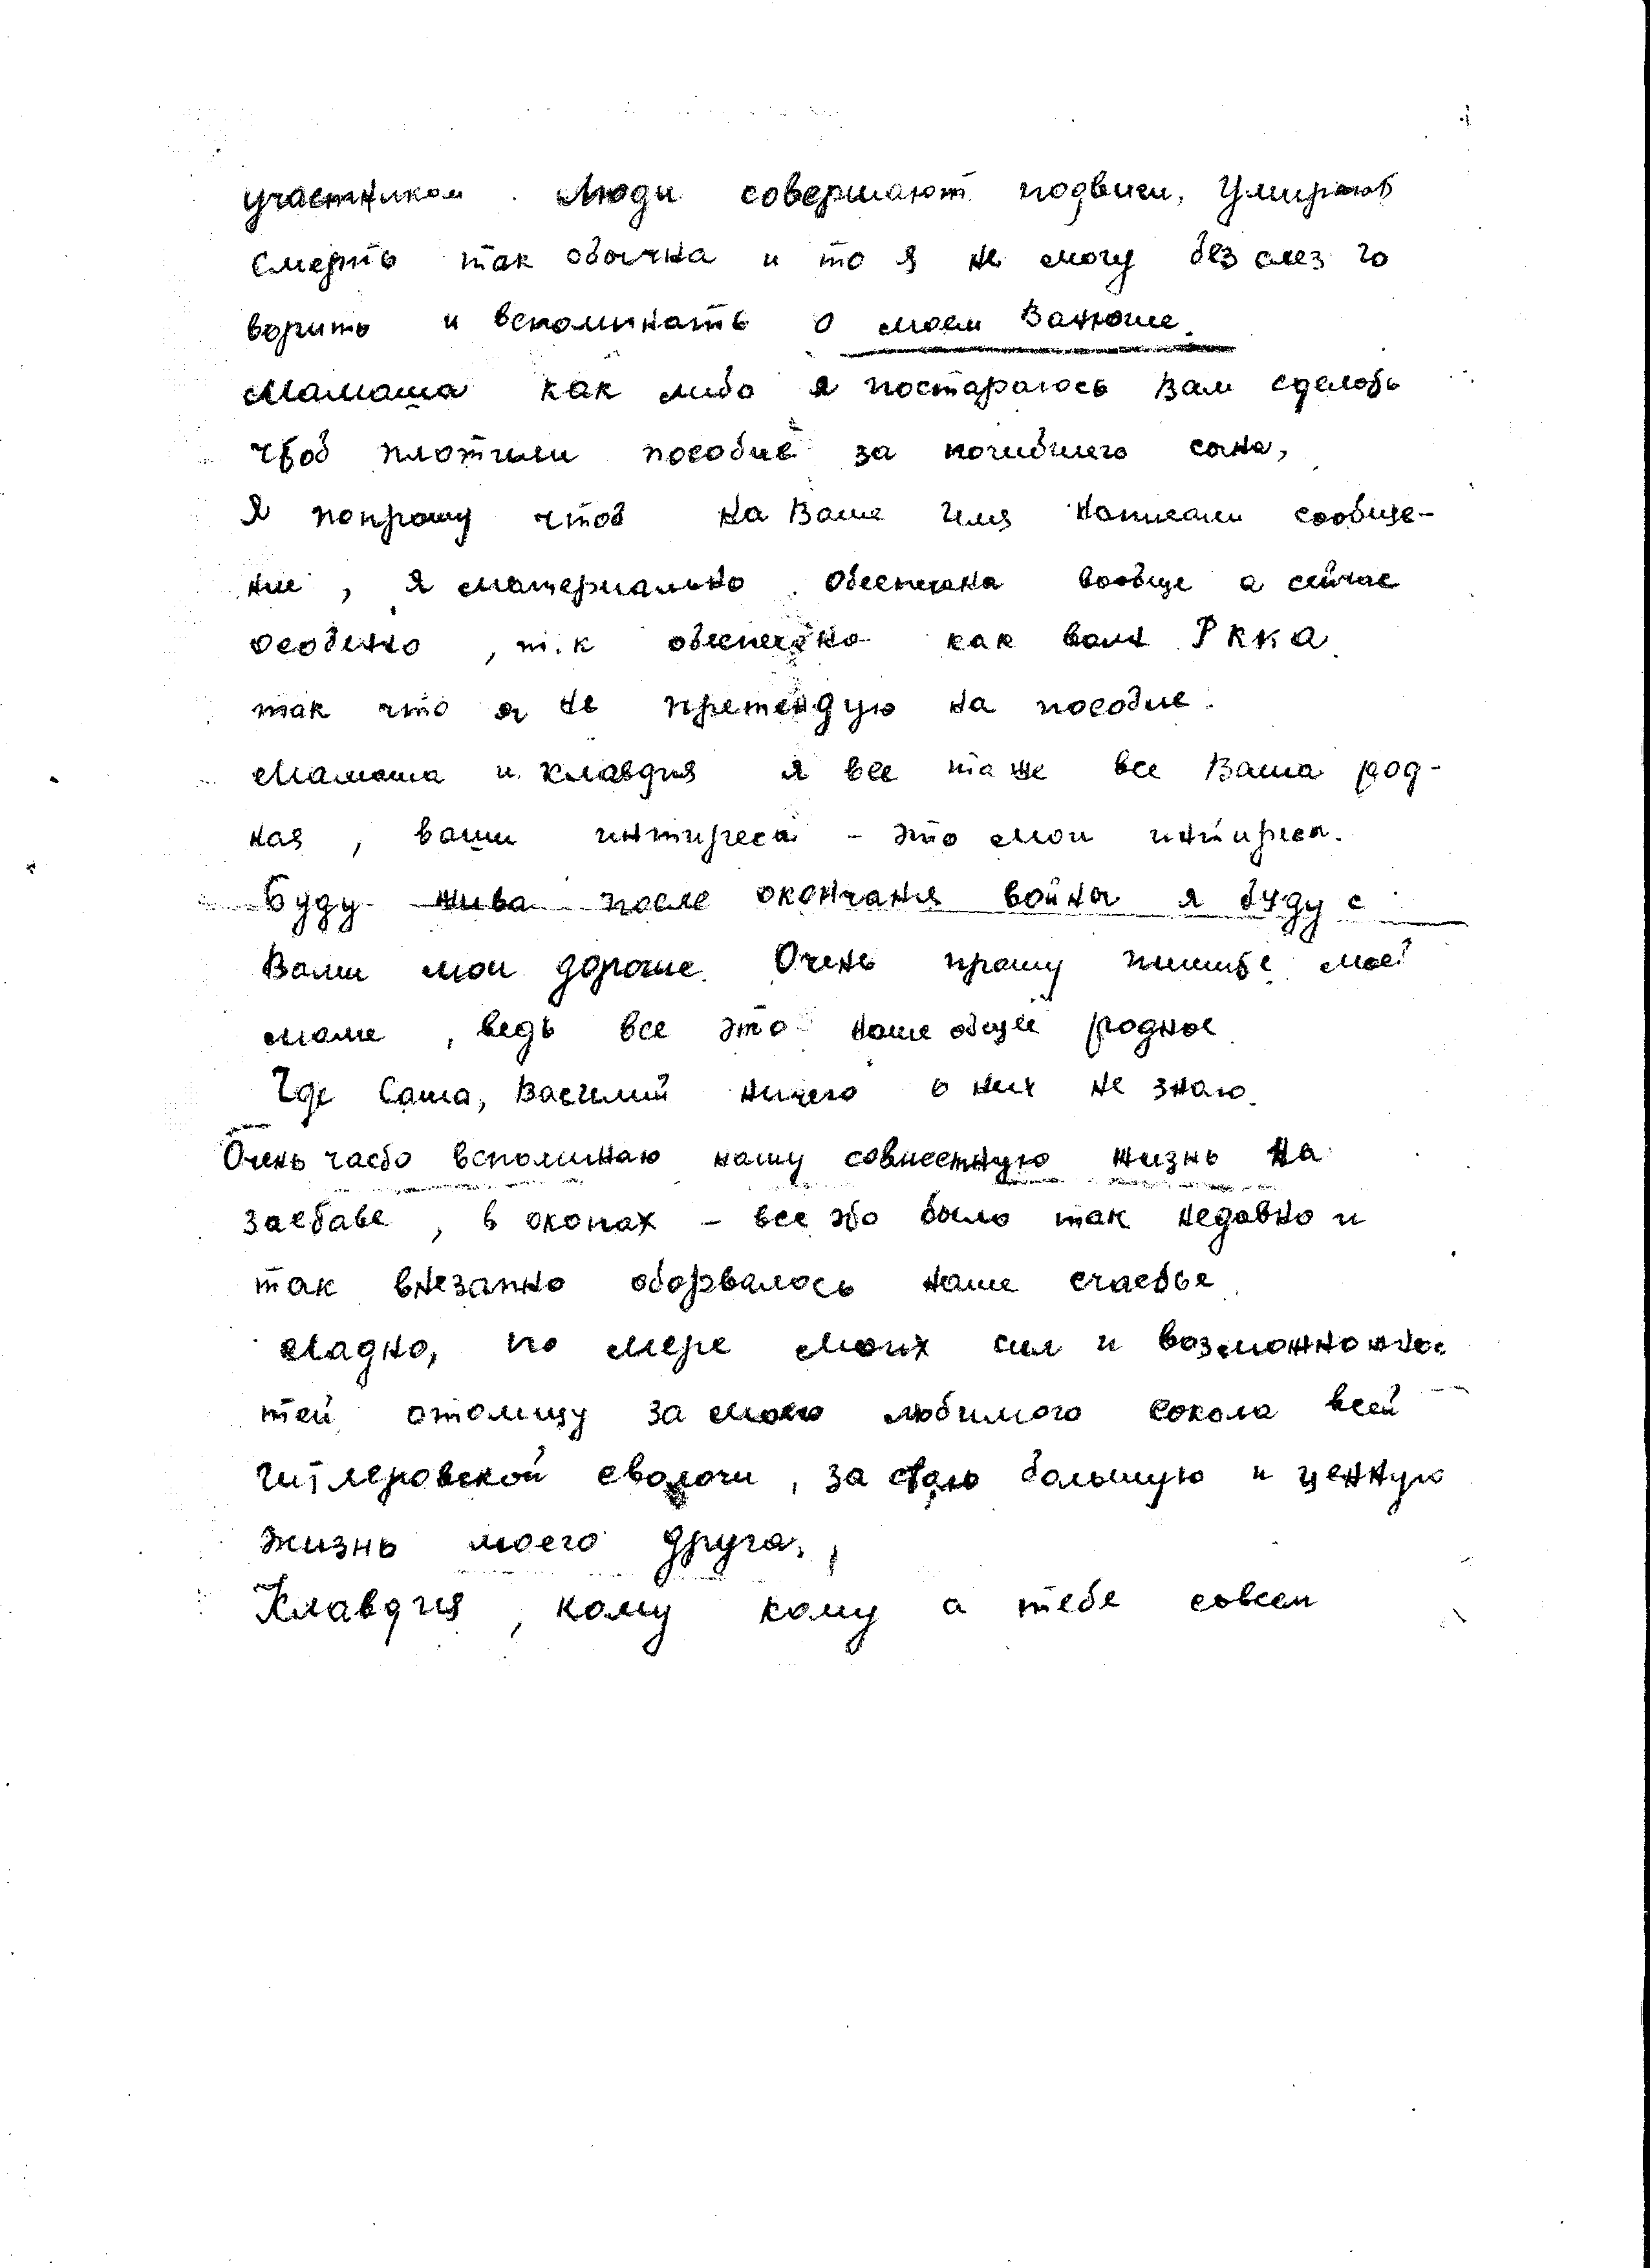 участником. Люди совершают подвиги, Умирают
Смерть так обычна и то я не могу без слез го
ворить и вспоминать о моем Ванюше.
Мамаша как либо я постараюсь Вам сделать
чтоб плотили пособие за погибшего сына,
Я попрошу чтоб На Ваше Имя Написали сообще-
ние, я материально обеспечена вообще а сейчас
особенно, т.к обеспечена как воин РККА
так что я не претендую на пособие.
Мамаша и Клавдия я все та же все Ваша род-
ная, ваши интиресы - это мои интиресы.
Буду жива после окончания войны я буду с
Вами мои дорогие. Очень прошу пишите моей
маме, ведь все это наше общее родное
Где Саша, Василий ничего о них не знаю.
Очень часто вспоминаю нашу совместную жизнь на
заставе, в окопах - все это было так недавно и
так внезапно оборвалось наше счастье
Ладно, по мере моих сил и возможнос
тей отомщу за моего любимого сокола всей
гитлеровской сволочи, за большую и ценную
жизнь моего друга,
Клавдия, кому кому а тебе совсем